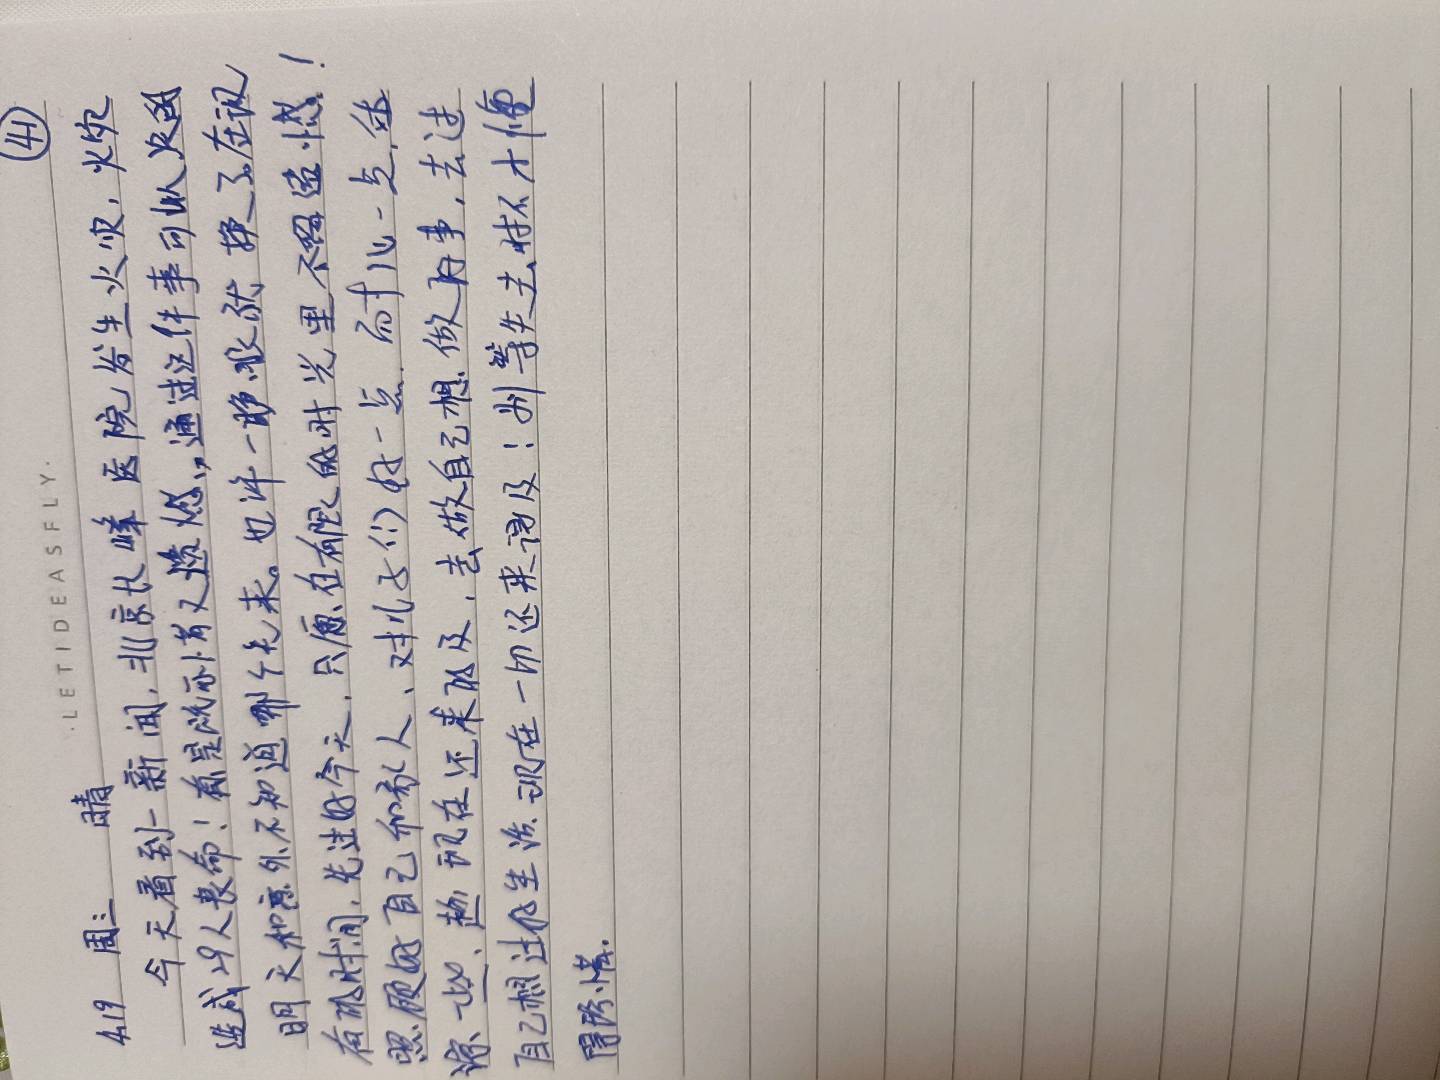 41
·LETIDEASFLY·
4.19 周三 晴
今天看到一新闻,北京长峰医院发生火灾,火灾
造成29人丧命!有是既可惜又遗憾,通过这件事可以
明天和意外不知道哪个先来。也许一睁眼就 在现
有的时间,先过好今天,只愿在有限的时光里不留遗憾!
照顾好自己和家人、对儿子们好一点 耐心一点
一切、趁现在还来的及,去做自己想做的事,去过
自己想过的生活.现在一切还来得及!别等失去时才懂
得珍惜.